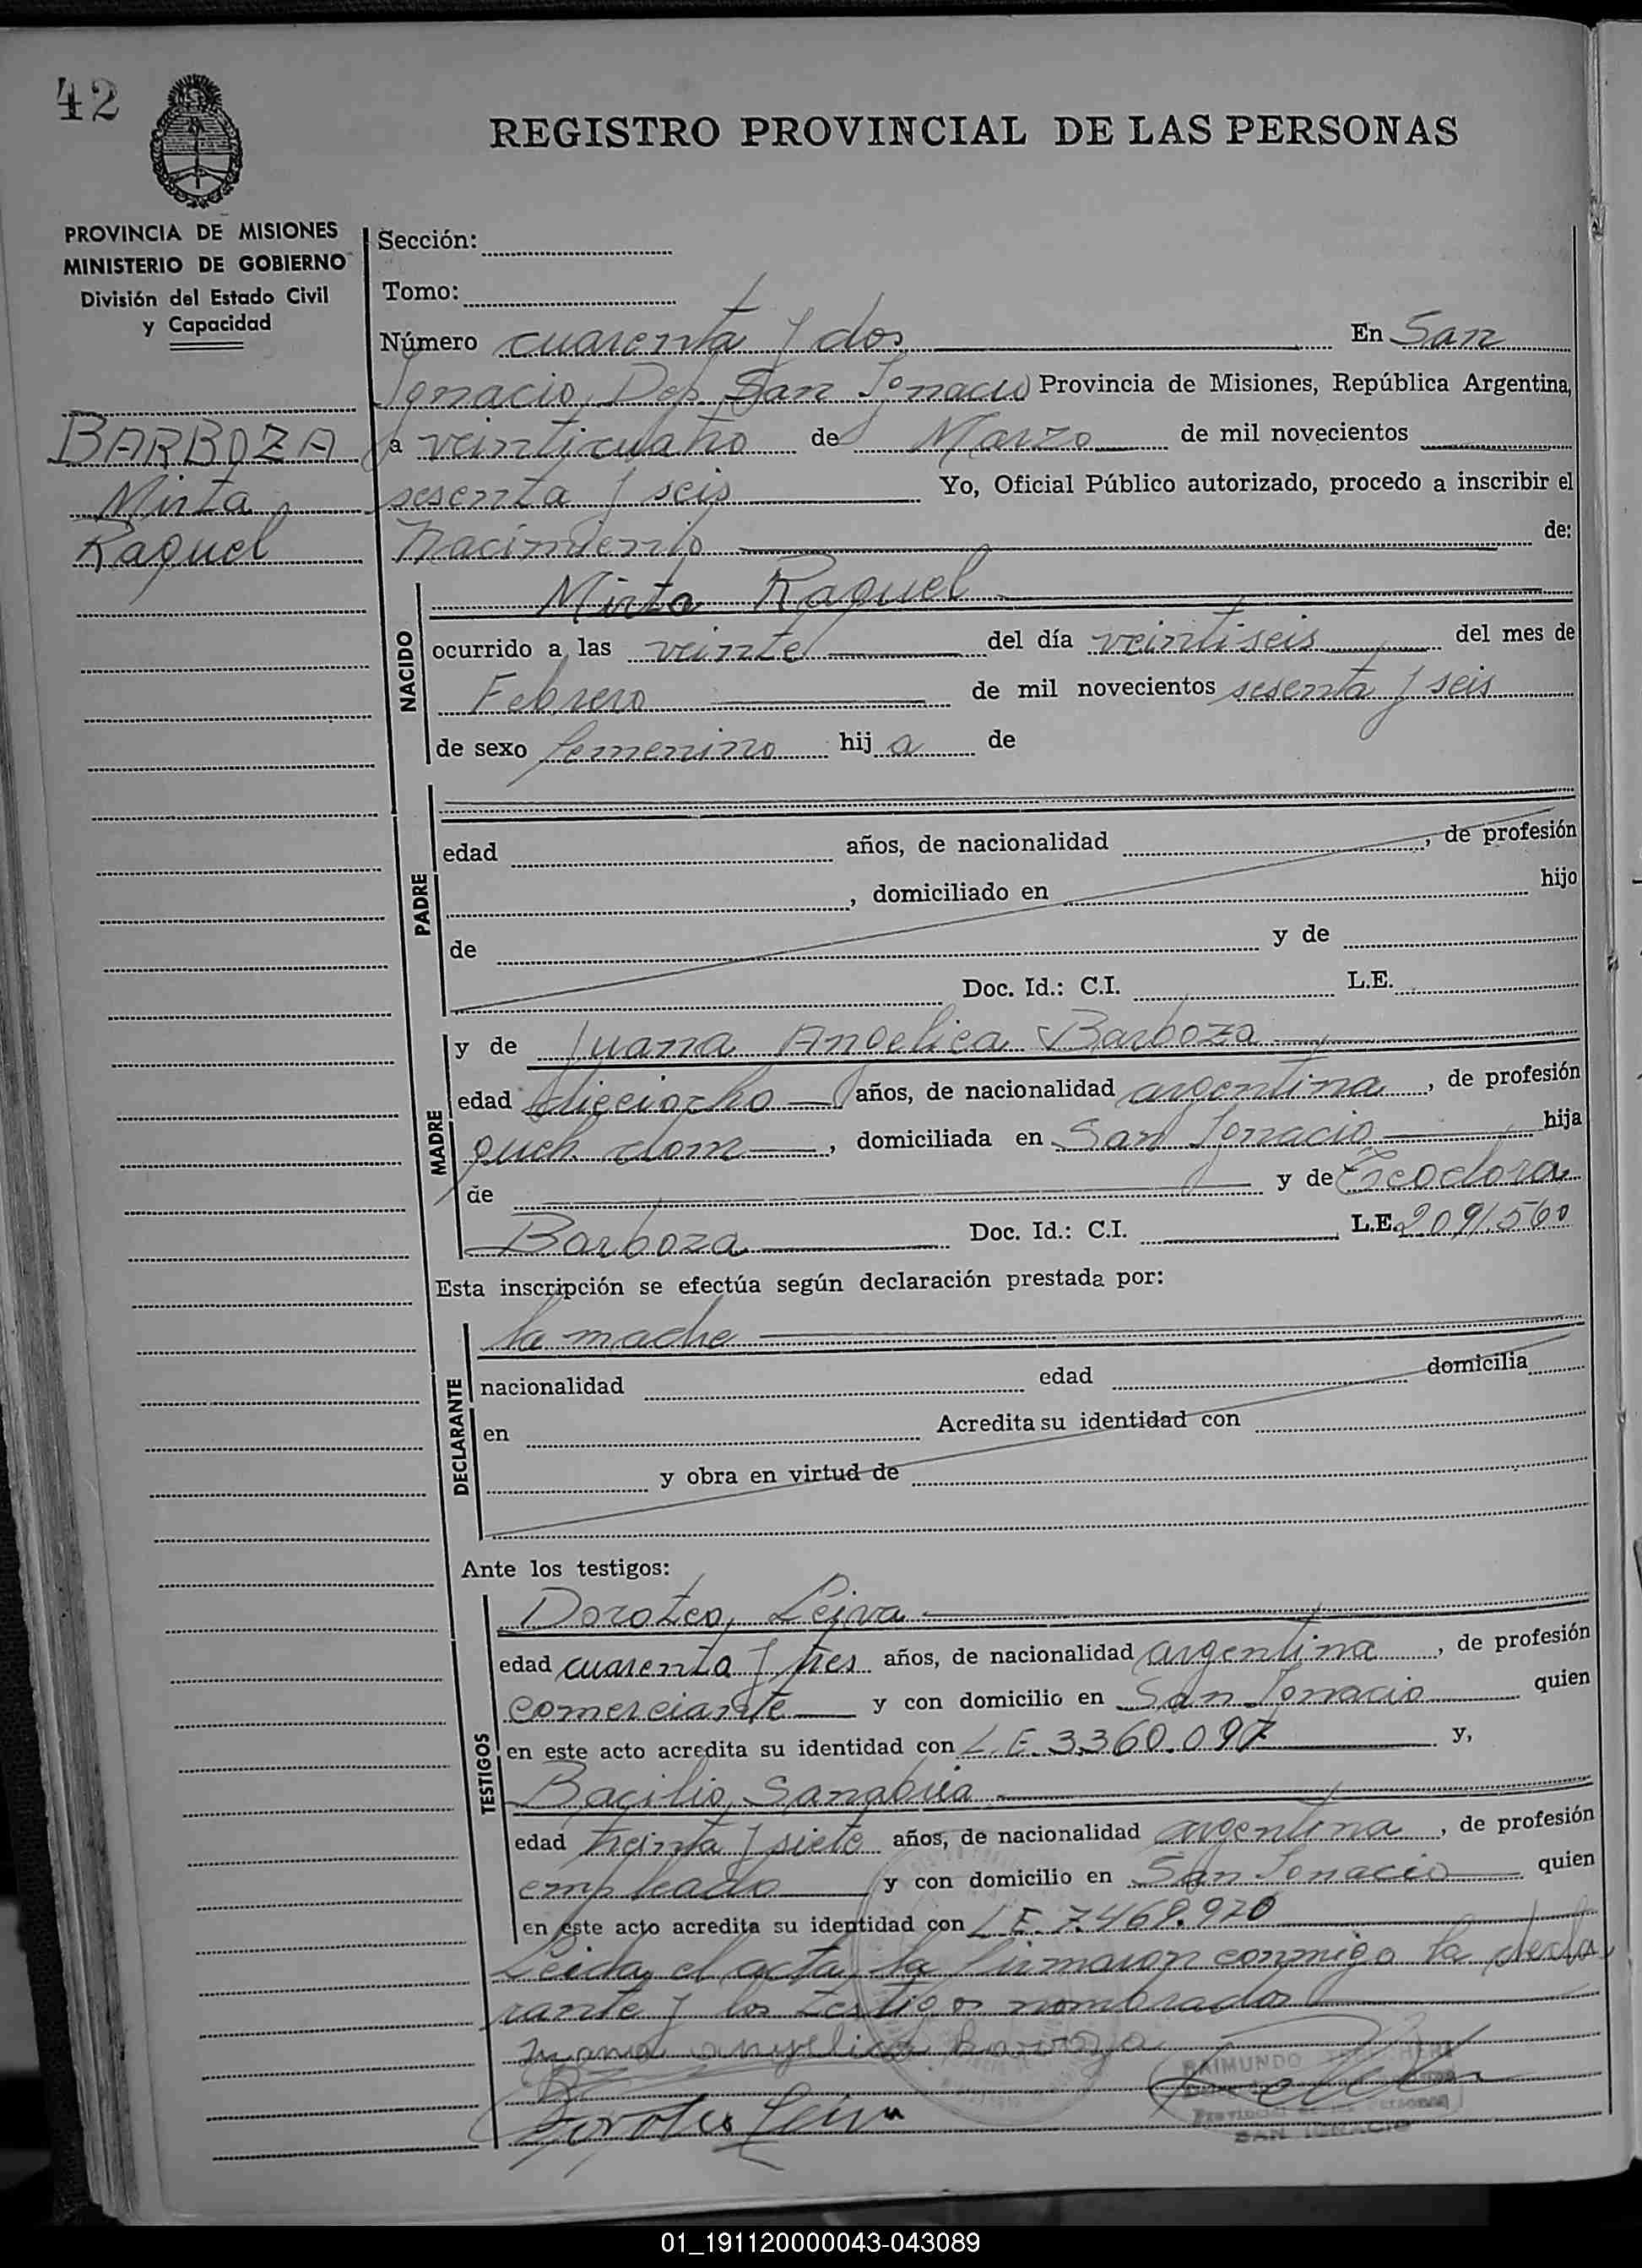 42
REGISTRO PROVINCIAL DE LAS PERSONAS
PROVINCIA DE MISIONES
MINISTERIO DE GOBIERNO
División del Estado Civil
y Capacidad
BARBOZA
Mirta
Raquel
Sección:
Tomo:
Número cuarenta y dos En San
Ignacio, Dep. San Ignacio Provincia de Misiones, República Argentina,
a veinticuatro de Marzo de mil novecientos
sesenta y seis Yo, Oficial Público autorizado, procedo a inscribir el
Nacimiento de:
NACIDO
Mirta Raquel
ocurrido a las veinte del día veintiseis del mes de
Febrero de mil novecientos sesenta y seis
de sexo femenino hija de
PADRE
edad años, de nacionalidad , de profesión
, domiciliado en hijo
de y de
Doc. Id.: C.I. L.E.
MADRE
y de Juana Angelica Barboza
edad dieciocho años, de nacionalidad argentina, de profesión
queh. dom , domiciliada en San Ignacio hija
de y de Teodora
Barboza Doc. Id.: C.I. L.E. 2.091.560
Esta inscripción se efectúa según declaración prestada por:
DECLARANTE
la madre
nacionalidad edad domicilia
en Acredita su identidad con
y obra en virtud de
Ante los testigos:
TESTIGOS
Doroteo, Leiva
edad cuarenta y tres años, de nacionalidad argentina, de profesión
comerciante y con domicilio en San Ignacio quien
en este acto acredita su identidad con L.E. 3.360.097 y,
Bacilio, Sanabria
edad treinta y siete años, de nacionalidad argentina, de profesión
empleado y con domicilio en San Ignacio quien
en este acto acredita su identidad con L.E. 7.469.920
Leida el acta, la firmaron conmigo la decla
rante y los testigos nombrados
Juana angelica Barboza
Doroteo Leiva
RAIMUNDO
SAN IGNACIO
01_191120000043-043089